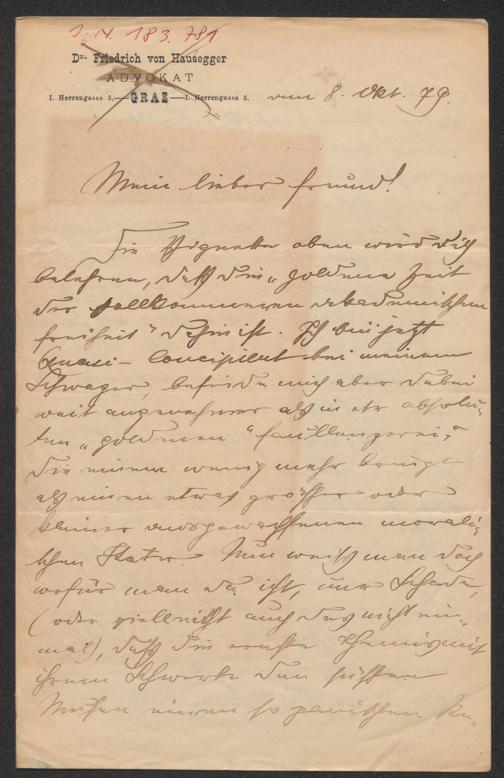 I. N. 183.781
Dr. Friedrich von Hausegger
ADVOKAT
I. Herrengasse 5, — GRAZ — I. Herrengasse 5.
am 8. Okt. 79.
Mein lieber Freund!
Die Vignette oben wird Dich
belehren, daß die „goldene Zeit
der vollkommenen akademischen
Freiheit" dahin ist. Ich bin jetzt
Quasi-Concipient bei meinem
Schwager, befinde mich aber dabei
weit angenehmer als in der absolu-
ten „goldenen" Faullenzerei,
die einem wenig mehr bringt
als einen etwas größer oder
kleiner ausgewachsenen morali-
schen Kater. Nun weiß man doch
wofür man da ist, nur Schade,
(oder vielleicht auch das nicht ein-
mal), daß die ernste Themis mit
ihrem Schwerte den süßen
Musen einen so panischen